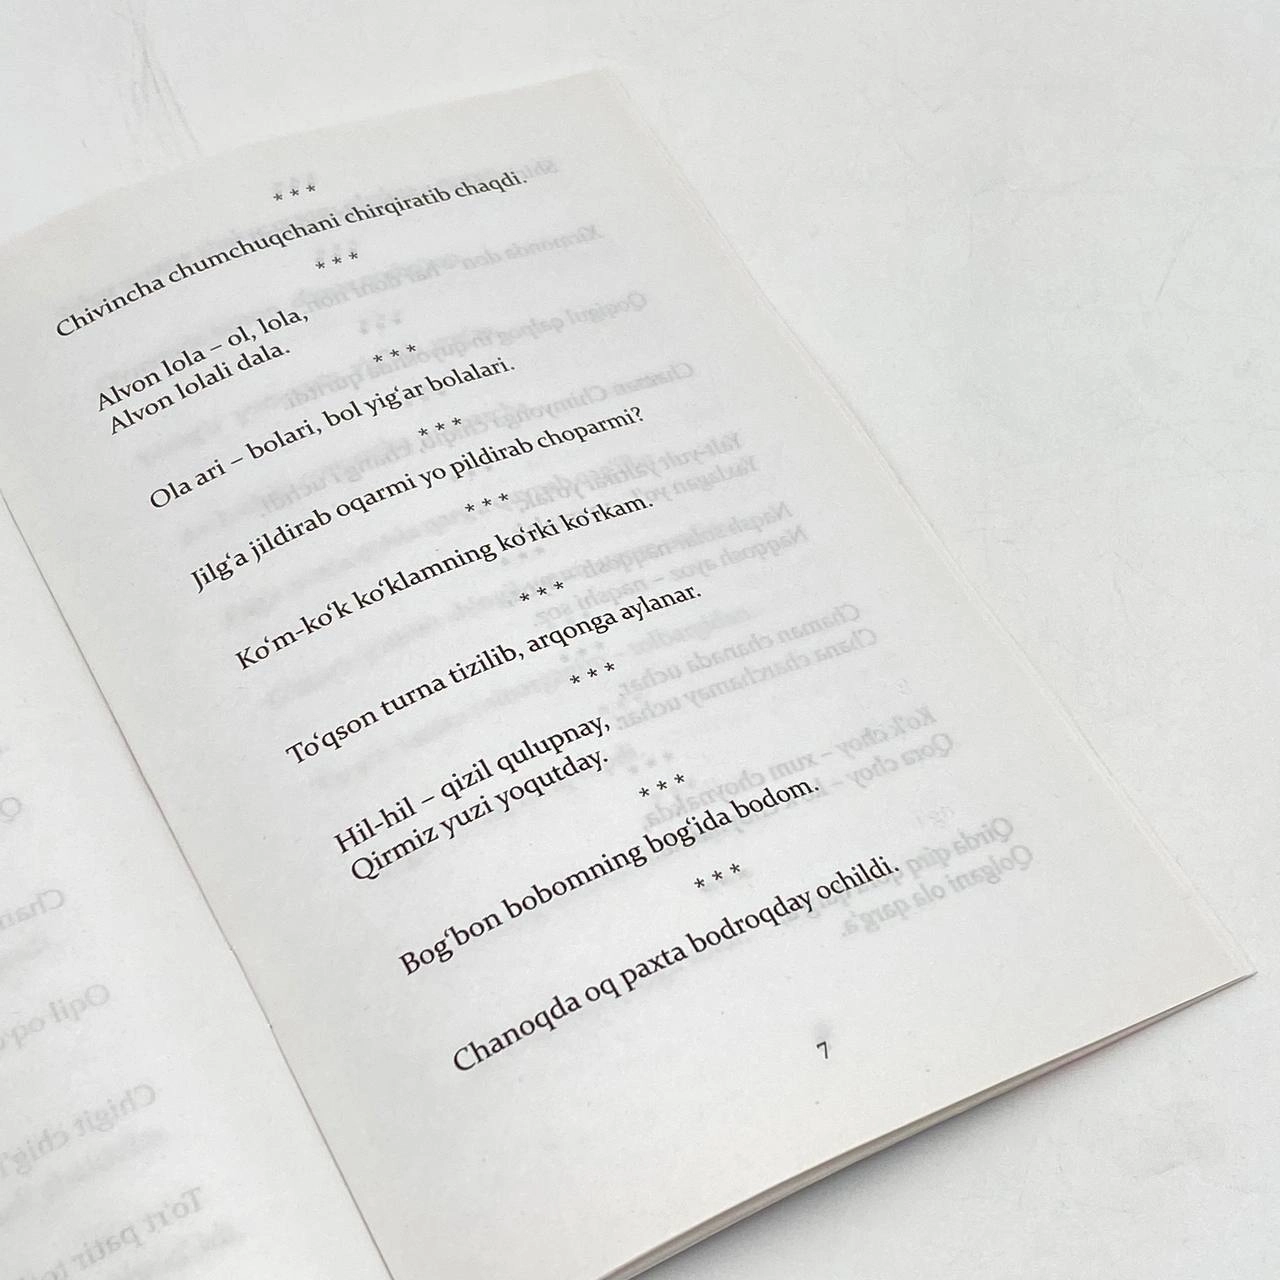 * * *
Chivincha chumchuqchani chirqiratib chaqdi.
* * *
Alvon lola – ol, lola,
Alvon lolali dala.
* * *
Ola ari – bolari, bol yig‘ar bolalari.
* * *
Jilg‘a jildirab oqarmi yo pildirab choparmi?
* * *
Ko‘m-ko‘k ko‘klamning ko‘rki ko‘rkam.
* * *
To‘qson turna tizilib, arqonga aylanar.
* * *
Hil-hil – qizil qulupnay,
Qirmiz yuzi yoqutday.
* * *
Bog‘bon bobomning bog‘ida bodom.
* * *
Chanoqda oq paxta bodroqday ochildi.
7